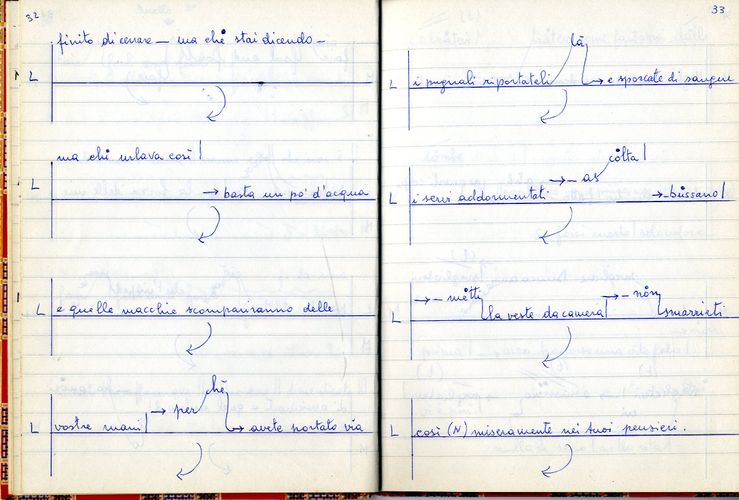 32
finito di cenare — ma chè stai dicendo —
L
ma chi urlava così!
L → basta un po' d'acqua
L e quelle macchie scompariranno dalle
chè
L vostre mani → per → avete portato via
33
là
L i pugnali riportateli → e sporcate di sangue
còlta!
→ - as
L i servi addormentati → - bùssano!
→ - mètti → - nòn
L la veste da camera smarrirti
L così (N) miseramente nei tuoi pensieri.